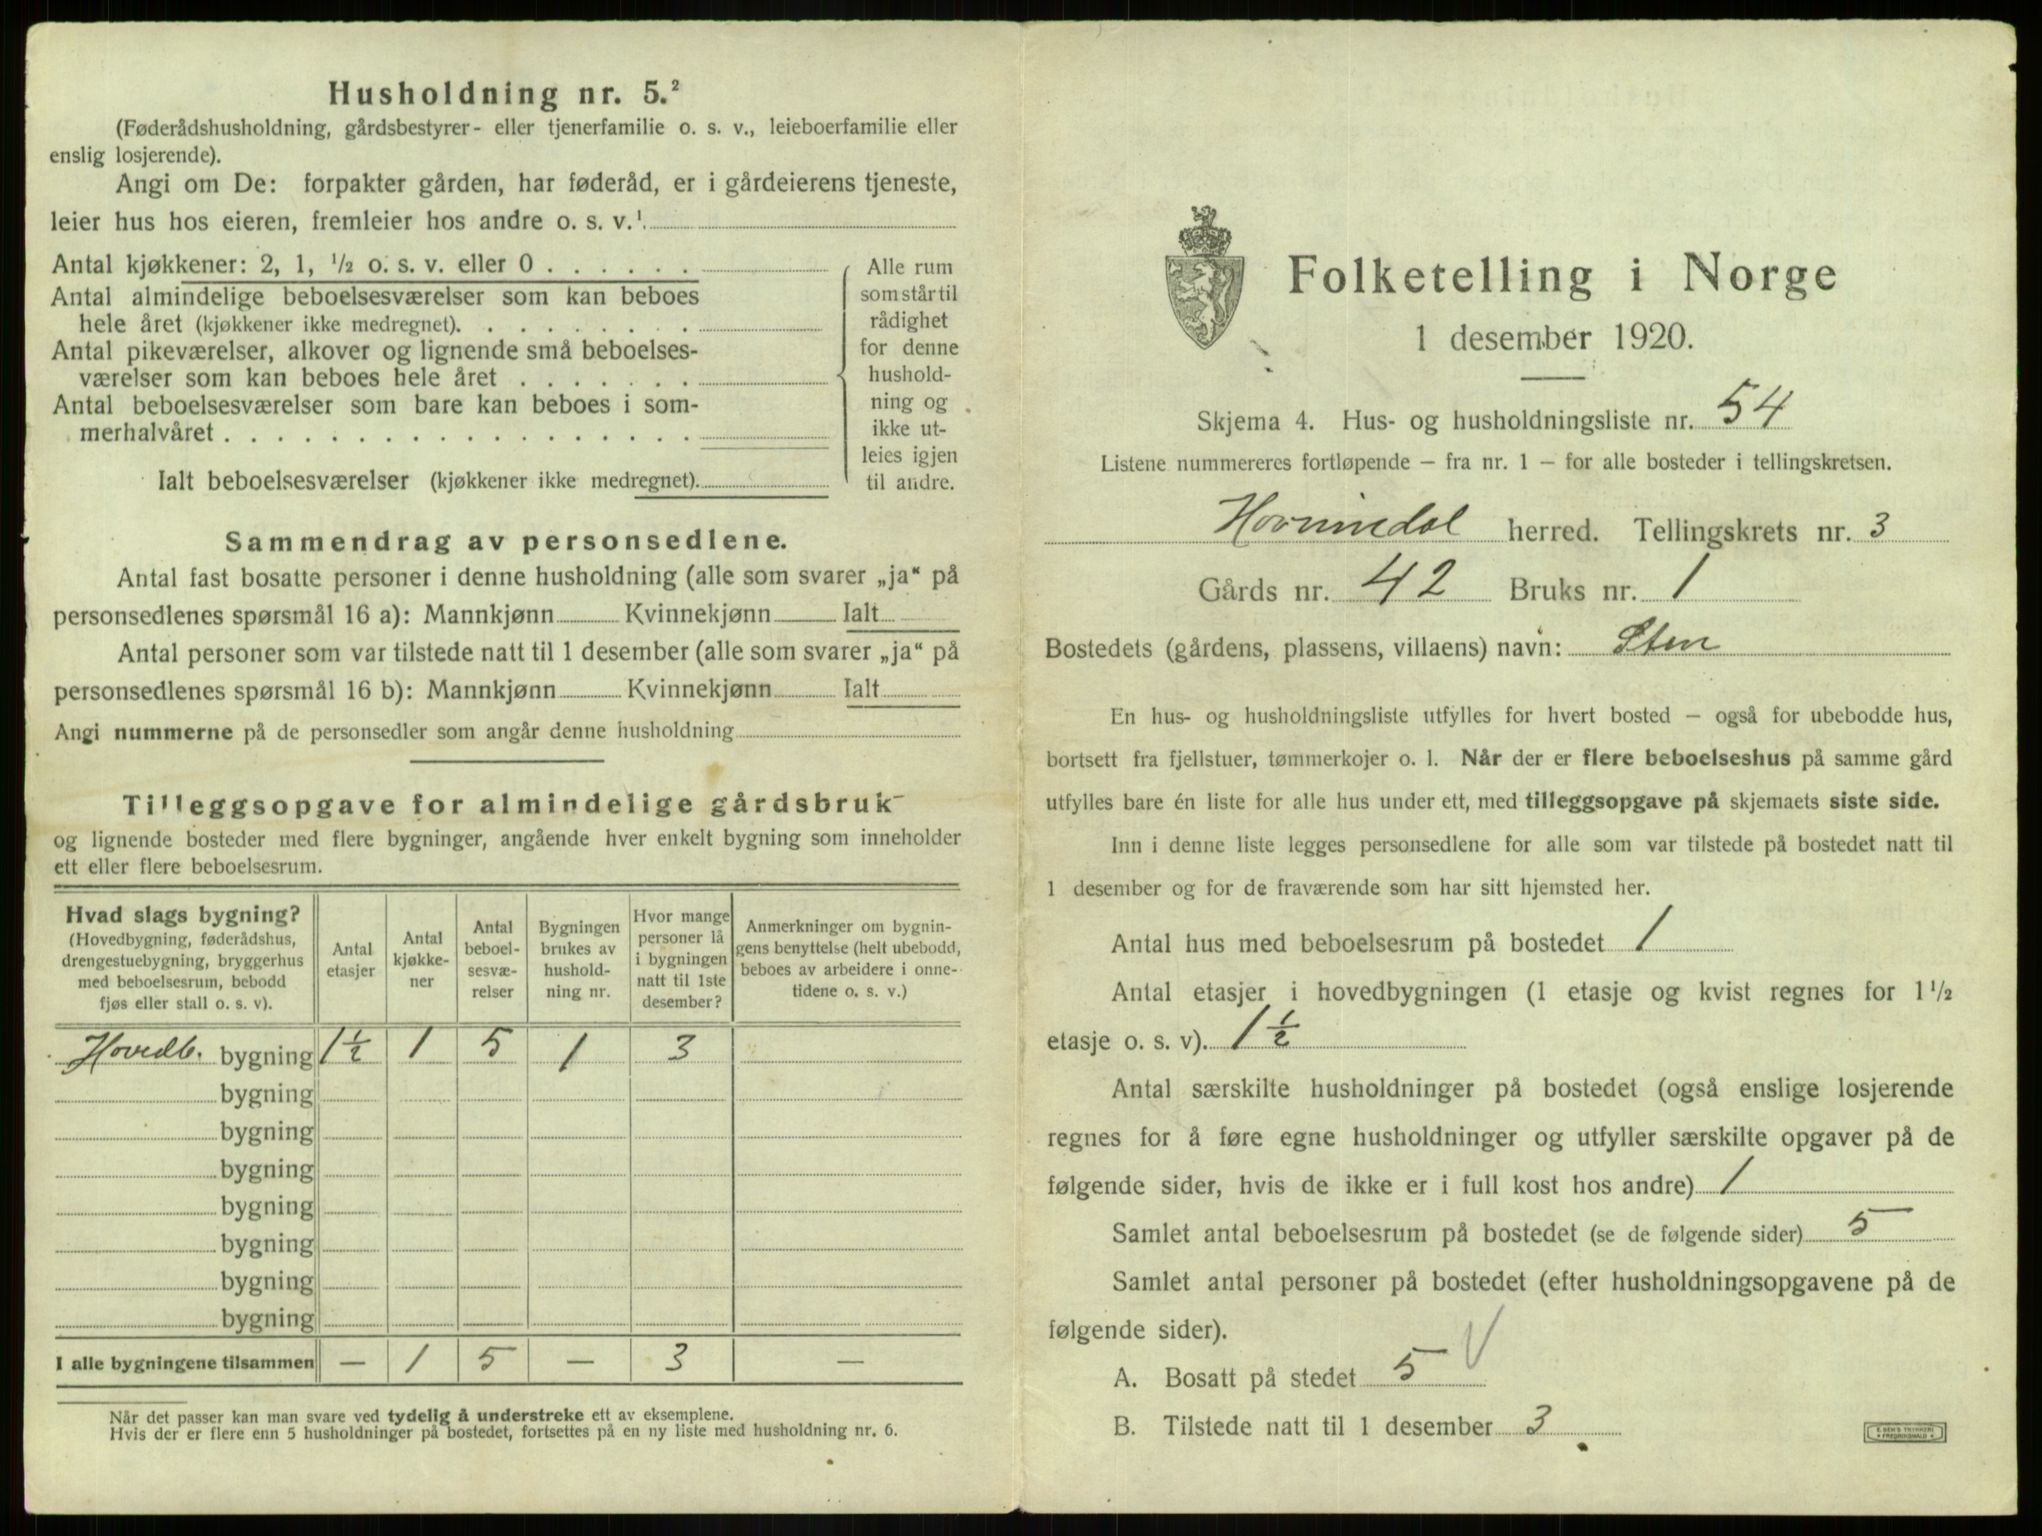 Husholdning nr. 5.²
(Føderådshusholdning, gårdsbestyrer- eller tjenerfamilie o. s. v., leieboerfamilie eller
enslig losjerende).
Angi om De: forpakter gården, har føderåd, er i gårdeierens tjeneste,
leier hus hos eieren, fremleier hos andre o. s. v.¹
Antal kjøkkener: 2, 1, ½ o. s. v. eller 0 . . . . . .
Antal almindelige beboelsesværelser som kan beboes
hele året (kjøkkener ikke medregnet). . . . . . . . .
Antal pikeværelser, alkover og lignende små beboelses-
værelser som kan beboes hele året . . . . . . .
Antal beboelsesværelser som bare kan beboes i som-
merhalvåret . . . . . . . . . . . . . . . . . .
Ialt beboelsesværelser (kjøkkener ikke medregnet).
Alle rum
som står til
rådighet
for denne
hushold-
ning og
ikke ut-
leies igjen
til andre.
Sammendrag av personsedlene.
Antal fast bosatte personer i denne husholdning (alle som svarer „ja“ på
personsedlenes spørsmål 16 a): Mannkjønn Kvinnekjønn Ialt
Antal personer som var tilstede natt til 1 desember (alle som svarer „ja“ på
personsedlenes spørsmål 16 b): Mannkjønn Kvinnekjønn Ialt
Angi nummerne på de personsedler som angår denne husholdning
Tilleggsopgave for almindelige gårdsbruk
og lignende bosteder med flere bygninger, angående hver enkelt bygning som inneholder
ett eller flere beboelsesrum.
Hvad slags bygning?
(Hovedbygning, føderådshus,
drengestuebygning, bryggerhus
med beboelsesrum, bebodd
fjøs eller stall o. s. v).
Antal
etasjer
Antal
kjøkke-
ner
Antal
beboel-
sesvæ-
relser
Bygningen
brukes av
hushold-
ning nr.
Hvor mange
personer lå
i bygningen
natt til 1ste
desember?
Anmerkninger om bygnin-
gens benyttelse (helt ubebodd,
beboes av arbeidere i onne-
tidene o. s. v.)
Hovedb. bygning 1½ 1 5 1 3
bygning
bygning
bygning
bygning
bygning
bygning
bygning
I alle bygningene tilsammen — 1 5 — 3 —
Når det passer kan man svare ved tydelig å understreke ett av eksemplene.
Hvis der er flere enn 5 husholdninger på bostedet, fortsettes på en ny liste med husholdning nr. 6.
Folketelling i Norge
1 desember 1920.
Skjema 4. Hus- og husholdningsliste nr. 54
Listene nummereres fortløpende – fra nr. 1 – for alle bosteder i tellingskretsen.
Hornindal herred. Tellingskrets nr. 3
Gårds nr. 42 Bruks nr. 1
Bostedets (gårdens, plassens, villaens) navn: Sten
En hus- og husholdningsliste utfylles for hvert bosted – også for ubebodde hus,
bortsett fra fjellstuer, tømmerkojer o. l. Når der er flere beboelseshus på samme gård
utfylles bare én liste for alle hus under ett, med tilleggsopgave på skjemaets siste side.
Inn i denne liste legges personsedlene for alle som var tilstede på bostedet natt til
1 desember og for de fraværende som har sitt hjemsted her.
Antal hus med beboelsesrum på bostedet 1
Antal etasjer i hovedbygningen (1 etasje og kvist regnes for 1½
etasje o. s. v). 1½
Antal særskilte husholdninger på bostedet (også enslige losjerende
regnes for å føre egne husholdninger og utfyller særskilte opgaver på de
følgende sider, hvis de ikke er i full kost hos andre) 1
Samlet antal beboelsesrum på bostedet (se de følgende sider) 5
Samlet antal personer på bostedet (efter husholdningsopgavene på de
følgende sider).
A. Bosatt på stedet 5 V
B. Tilstede natt til 1 desember 3